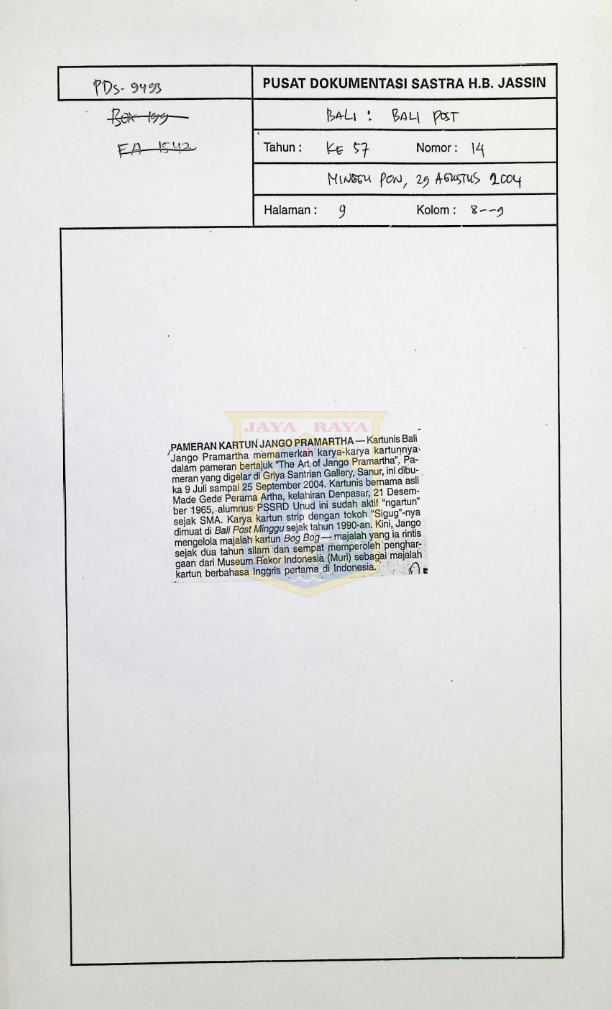 PDS- 9493
PUSAT DOKUMENTASI SASTRA H.B. JASSIN
Box 199
BALI : BALI POST
EA 1542
Tahun : KE 57 Nomor : 14
MINGGU PON, 29 AGUSTUS 2004
Halaman : 9 Kolom : 8--9
JAYA RAYA
PAMERAN KARTUN JANGO PRAMARTHA — Kartunis Bali
Jango Pramartha memamerkan karya-karya kartunnya
dalam pameran bertajuk "The Art of Jango Pramartha", Pa-
meran yang digelar di Griya Santrian Gallery, Sanur, ini dibu-
ka 9 Juli sampai 25 September 2004. Kartunis bernama asli
Made Gede Perama Artha, kelahiran Denpasar, 21 Desem-
ber 1965, alumnus PSSRD Unud ini sudah aktif "ngartun"
sejak SMA. Karya kartun strip dengan tokoh "Sigug"-nya
dimuat di Bali Post Minggu sejak tahun 1990-an. Kini, Jango
mengelola majalah kartun Bog Bog — majalah yang ia rintis
sejak dua tahun silam dan sempat memperoleh penghar-
gaan dari Museum Rekor Indonesia (Muri) sebagai majalah
kartun berbahasa Inggris pertama di Indonesia.